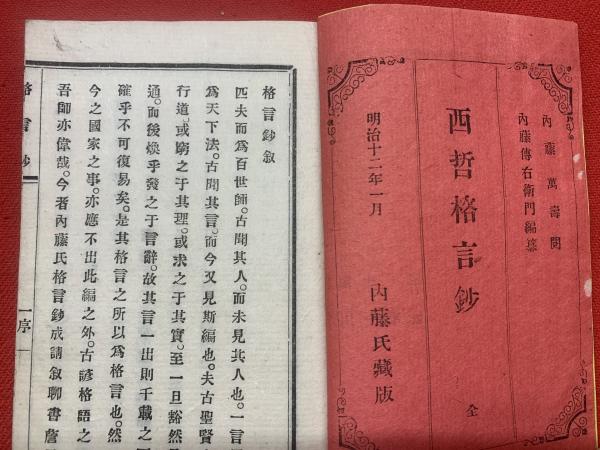 內藤萬壽閲
內藤傳右衛門編纂
西哲格言鈔
全
明治十二年一月
內藤氏藏版
格言鈔叙
匹夫而爲百世師。古聞其人。而未見其人也。一言
爲天下法。古聞其言。而今又見斯編也。夫古聖賢
行道。或窮之于其理。或求之于其實。至一旦豁然
通。而後煥乎發之于言辭。故其言一出則千載之
確乎不可復易矣。是其格言之所以爲格言也。然
今之國家之事。亦應不出此編之外。古諺格語之
吾師亦偉哉。今者內藤氏格言鈔成請叙聊書詹
格言鈔
序
一